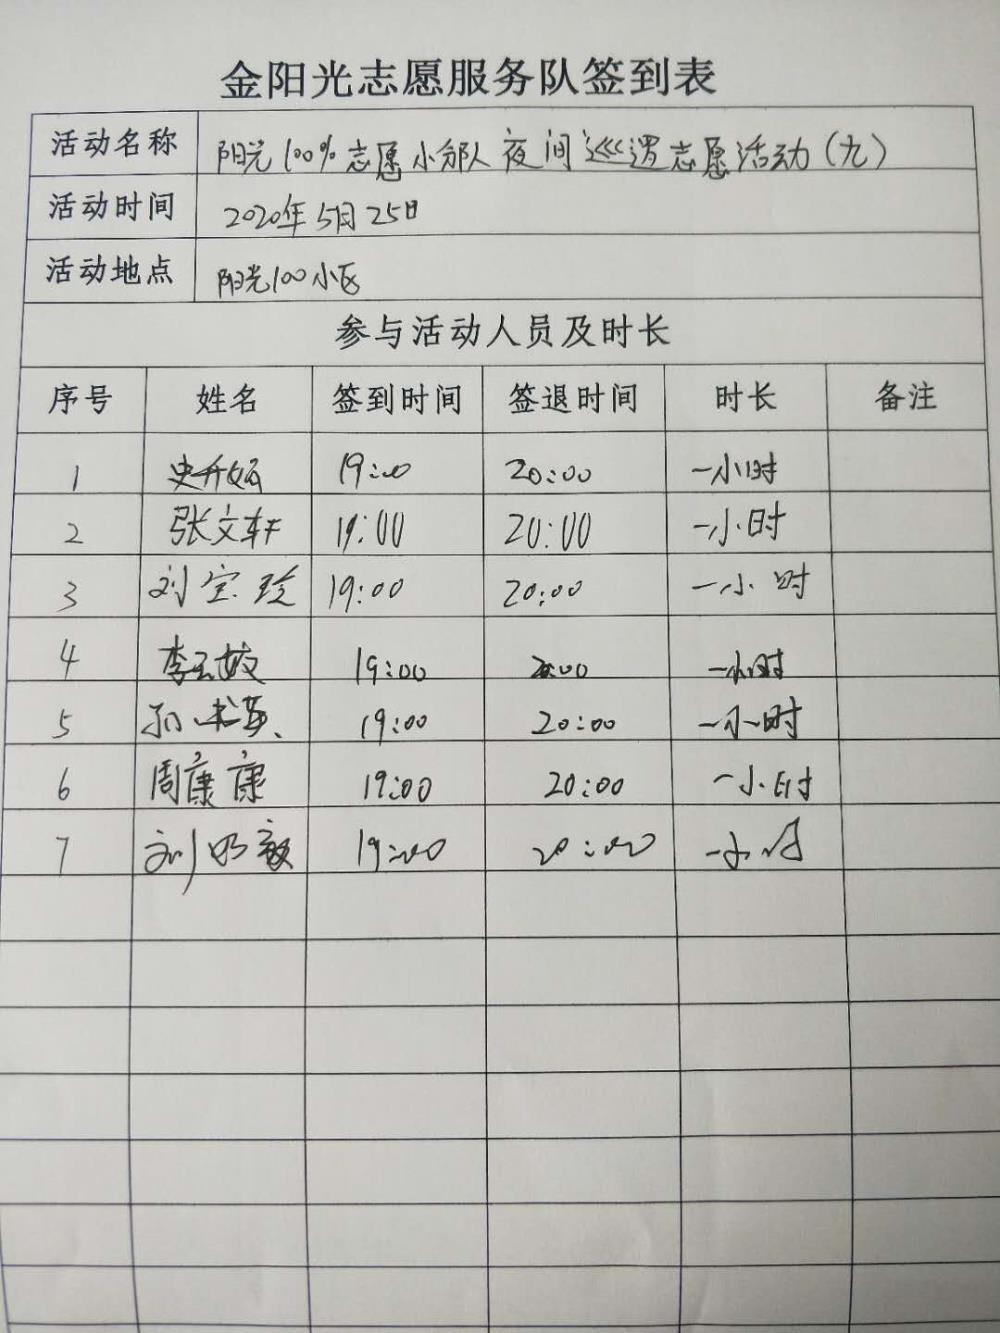 金阳光志愿服务队签到表
活动名称 阳光100%志愿小分队夜间巡逻志愿活动(九)
活动时间 2020年5月25日
活动地点 阳光100小区
参与活动人员及时长
序号 姓名 签到时间 签退时间 时长 备注
1 19:00 20:00 一小时
2 张文轩 19:00 20:00 一小时
3 刘宝玲 19:00 20:00 一小时
4 19:00 20:00 一小时
5 19:00 20:00 一小时
6 周康康 19:00 20:00 一小时
7 19:00 20:00 一小时